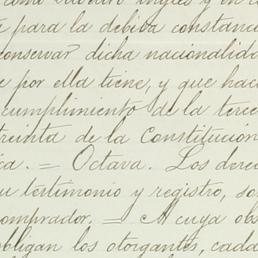 como súbdito inglés y en
para la debida constanc
conservar dicha nacionalid
e por ella tiene, y que hac
cumplimiento de la terce
trunta de la Constitucion
ica. = Octava. Los derec
su testimonio y registro, so
omprador. = A cuya obs
obligan los otorgantes, cada